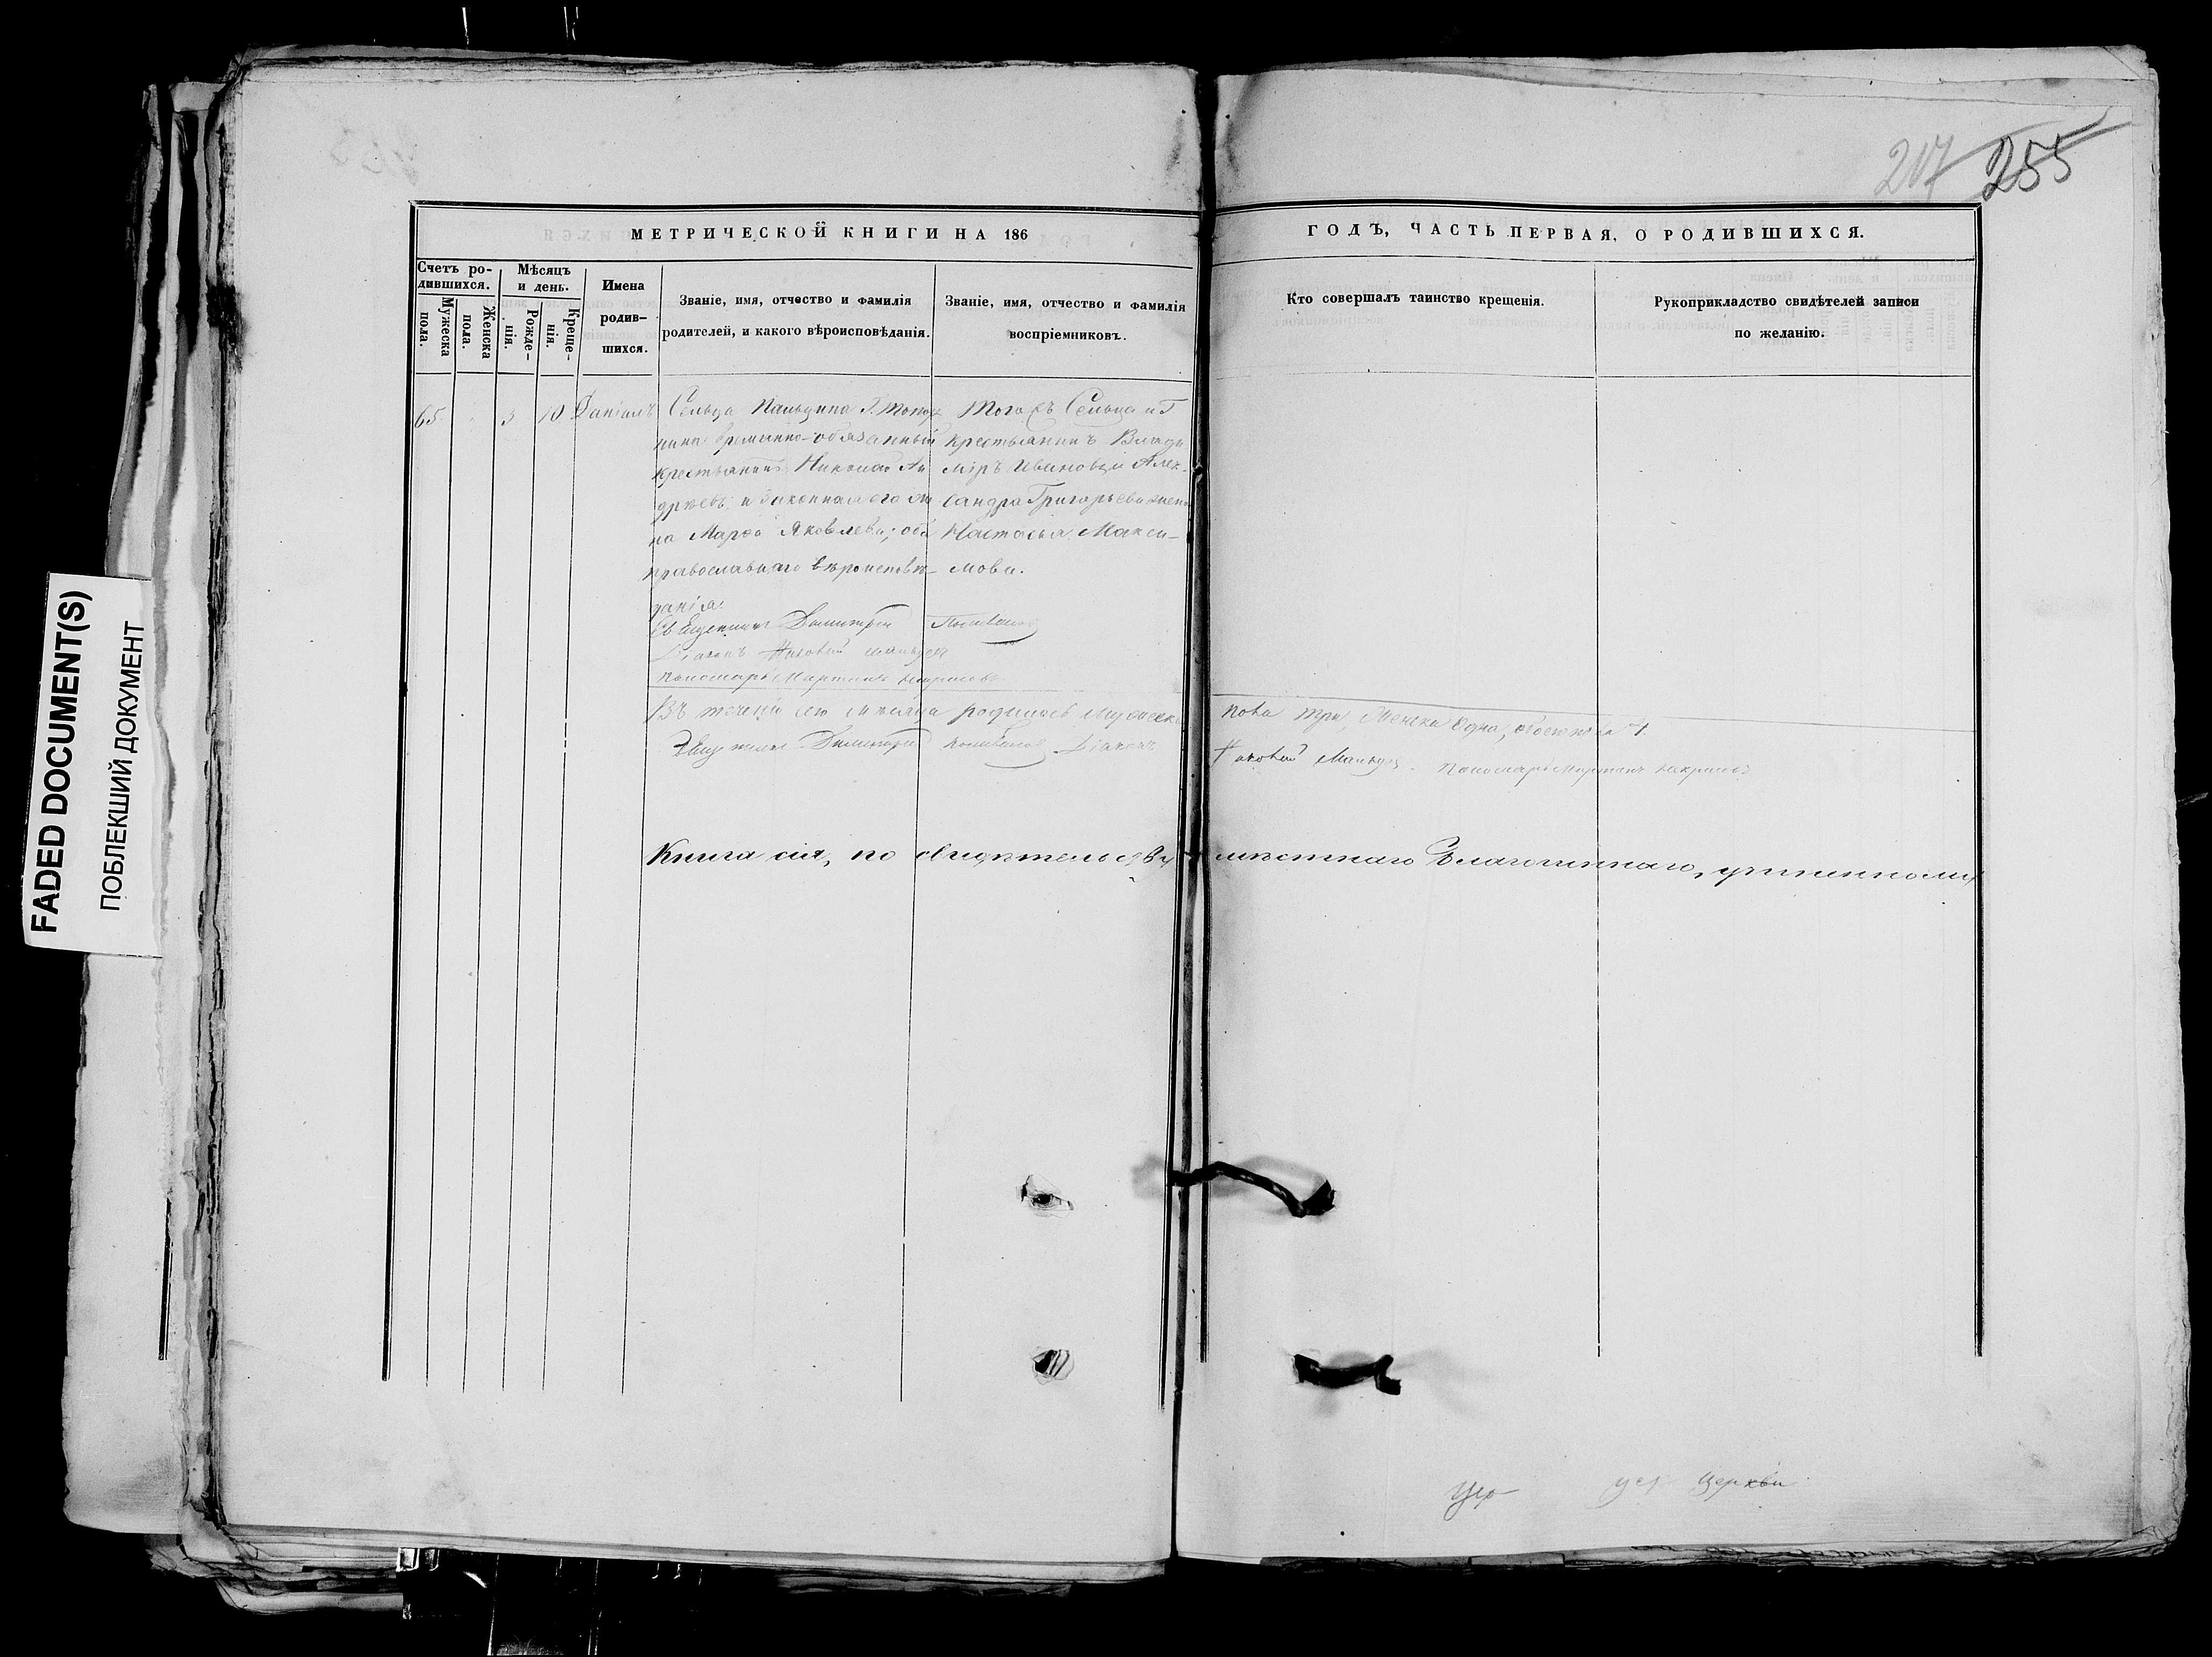 217 255
МЕТРИЧЕСКОЙ КНИГИ НА 186
ГОДЪ, ЧАСТЬ ПЕРВАЯ, О РОДИВШИХСЯ.
Счетъ ро-
дившихся.
Мужеска
пола.
Женска
пола.
Мѣсяцъ
и день.
Рожде-
нія.
Креще-
нія.
Имена
родив-
шихся.
Званіе, имя, отчество и фамилія
родителей, и какого вѣроисповѣданія.
Званіе, имя, отчество и фамилія
воспріемниковъ.
Кто совершалъ таинство крещенія.
Рукоприкладство свидѣтелей записи
по желанію.
65
3
10
Даніилъ
Сельца
временно-обязанный
крестьянинъ Николай Ан
дреевъ и законная его же
на Марѳа Яковлева; оба
православнаго вѣроисповѣ-
данія.
Того съ Сельца и Г
крестьянинъ Влади
міръ Ивановъ и Алек-
сандра Григорьева жена
Настасья Макси-
мова.
Священникъ Димитрій
Діаконъ
Пономарь Мартинъ
Въ теченіи сего мѣсяца родилось мужеска
пола три, Женска одна, обоего пола 4
Священникъ Димитрій Діаконъ
Пономарь Мартинъ
Книга сія, по свидѣтельству
мѣстнаго Благочиннаго,
Цер
церкви
FADED DOCUMENT(S)
ПОБЛЕКШИЙ ДОКУМЕНТ